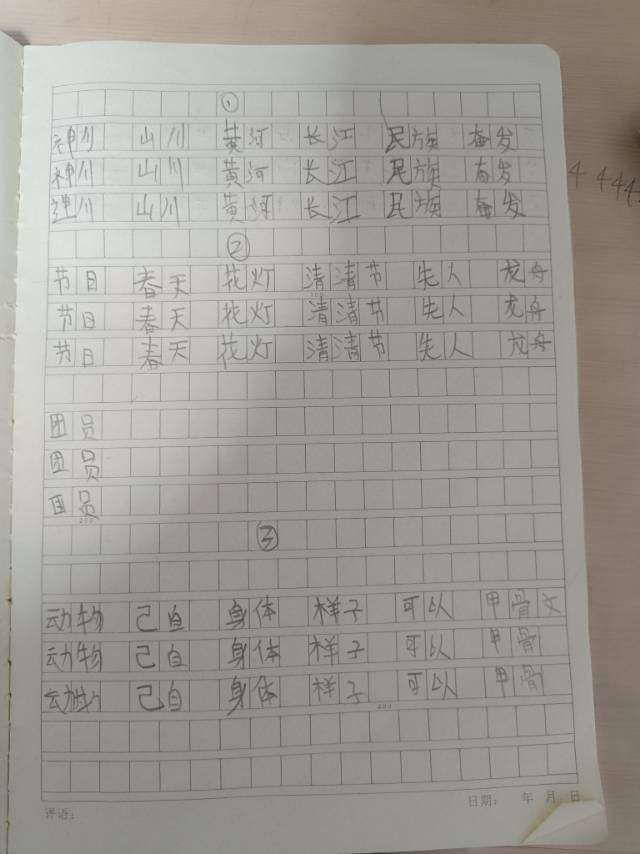 ①
神川 山川 黄河 长江 民族 奋发
神川 山川 黄河 长江 民族 奋发
川 山川 黄河 长江 民族 奋发
4 4 4 4
②
节目 春天 花灯 清清节 失人 龙舟
节日 春天 花灯 清清节 失人 龙舟
节日 春天 花灯 清清节 失人 龙舟
团员
团员
团员
200
③
动物 己自 身体 样子 可以 甲骨文
动物 己自 身体 样子 可以 甲骨
动物 己自 身体 样子 可以 甲骨
评语: 日期: 年 月 日